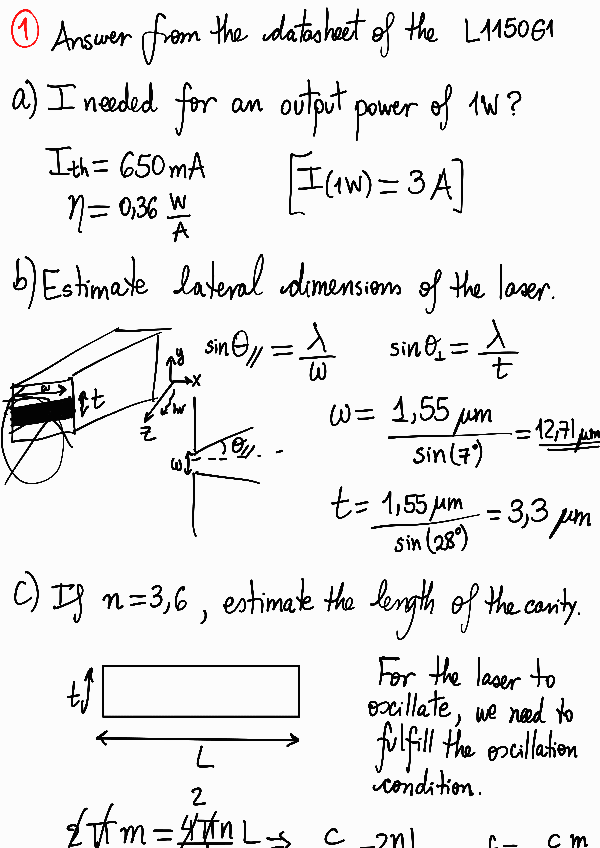 ① Answer from the datasheet of the L1150G1
a) I needed for an output power of 1W?
I_th = 650 mA [I(1W) = 3 A]
η = 0,36 W/A
b) Estimate lateral dimensions of the laser.
sinθ_// = λ/ω sinθ_⊥ = λ/t
ω t y x z hν
ω θ_//
ω = 1,55 μm / sin(7°) = 12,71 μm
t = 1,55 μm / sin(28°) = 3,3 μm
c) If n=3,6, estimate the length of the cavity.
t
L
For the laser to
oscillate, we need to
fulfill the oscillation
condition.
2
2πm = 4πn L → c